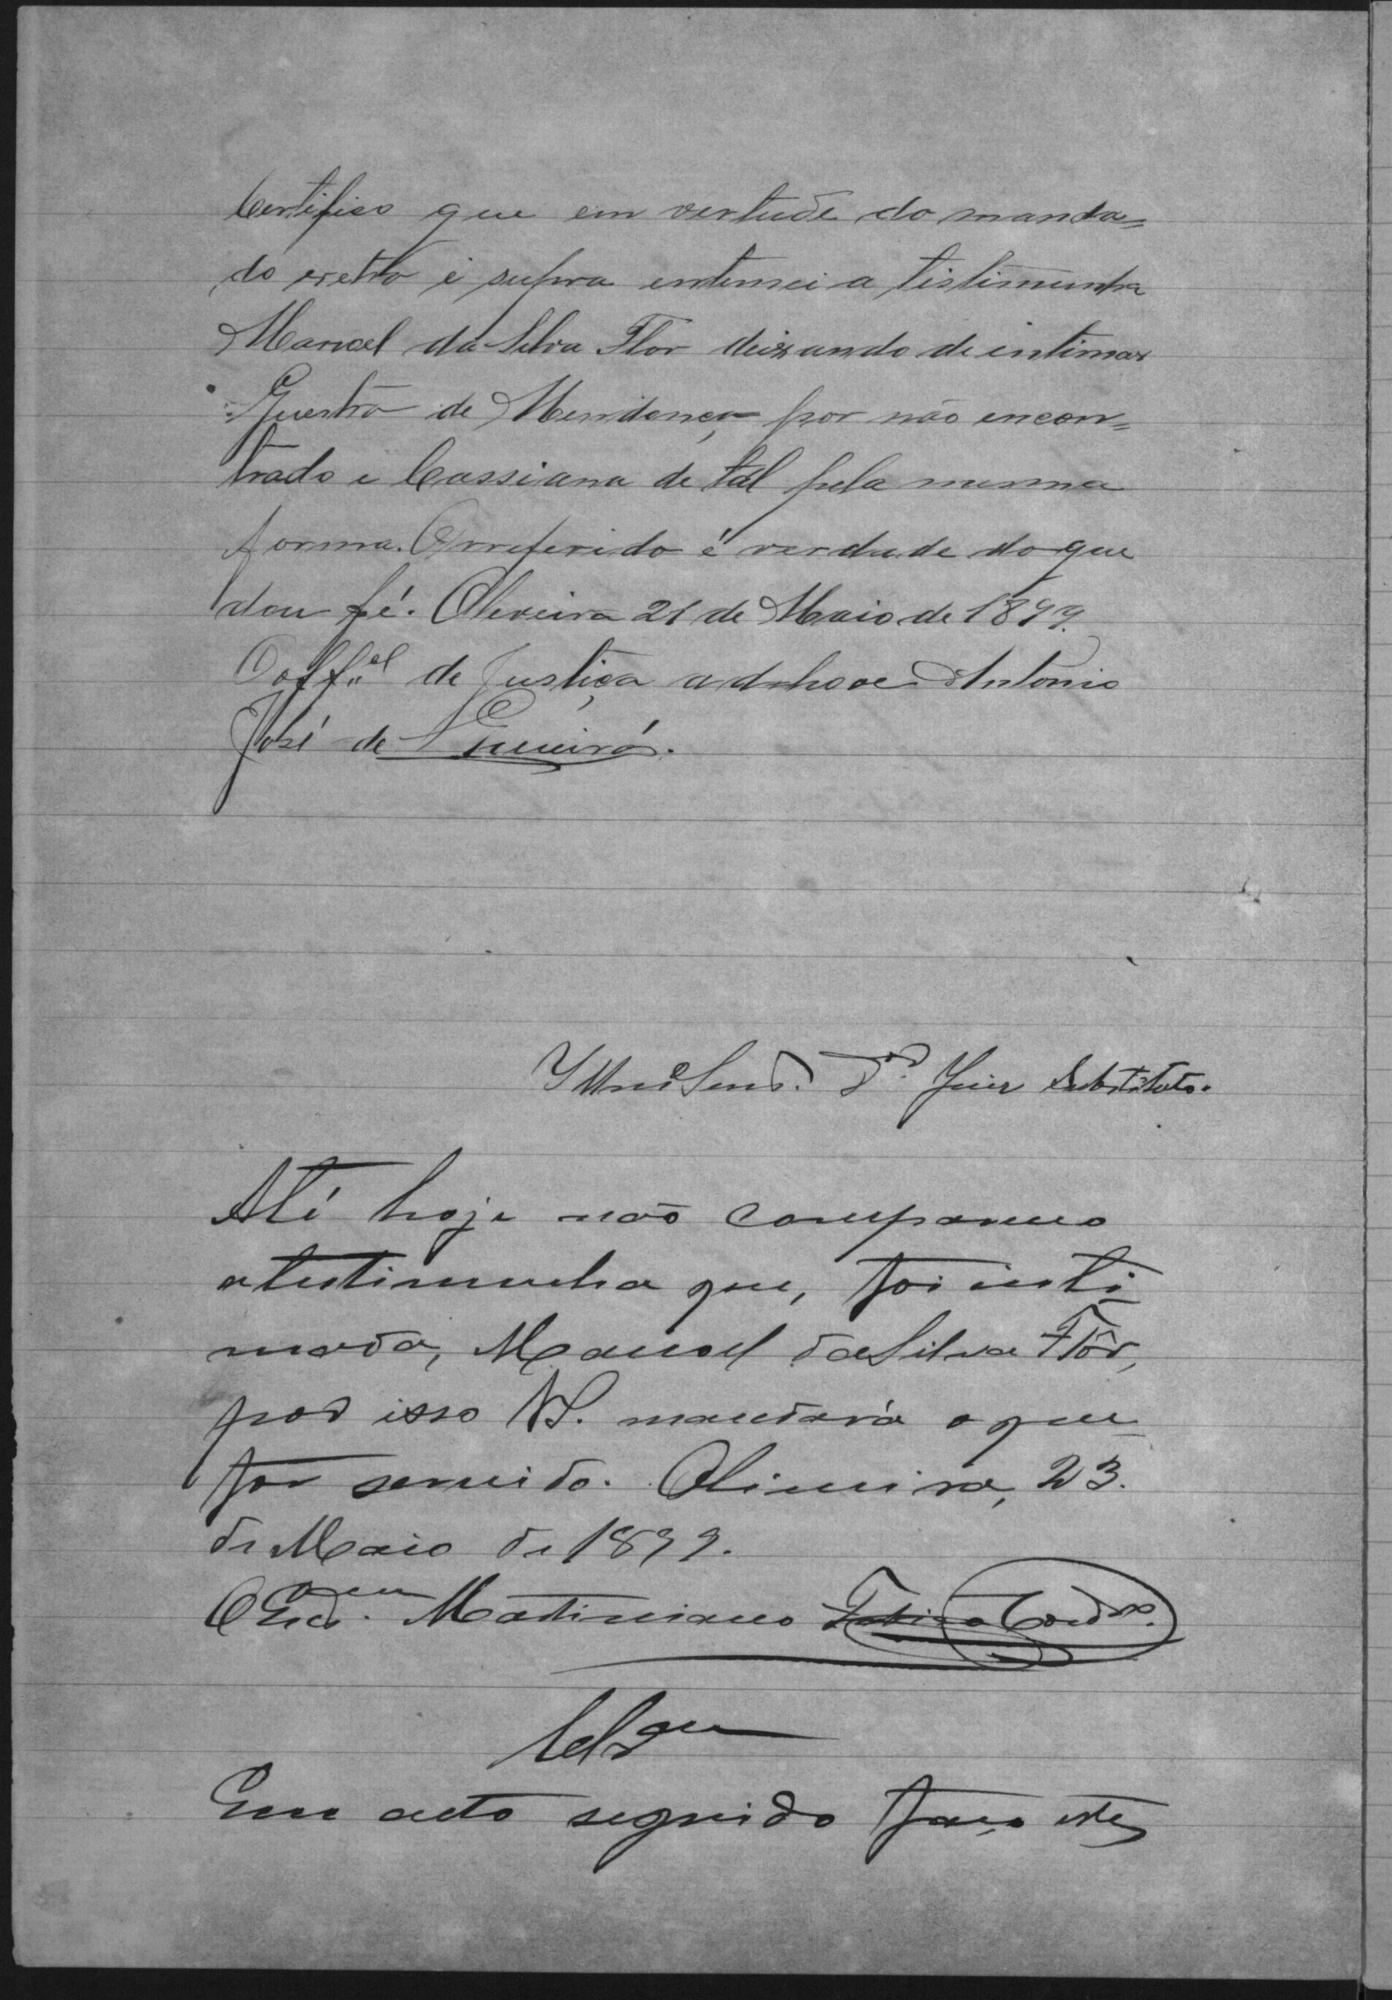 Certifico que em vertude do manda=
do eretro e supra entimei a tistimunha
Manoel da Silva Flor deixando de intimar
de Mendonça por não encon=
trado e Cassiana de tal pela mesma
forma. Orreferido é verdade do que
dou fé. Oliveira 21 de Maio de 1899.
O off.al de Justiça ad hoc Antonio
José de
Illmo Senr. Dr. Juiz Substituto.
Até hoje não compareceu
a testimunha que, foi inti
mada, Manoel da Silva Flôr,
por isso VS. mandará o que
for servido. Oliveira, 23.
de Maio de 1899.
O Escr.am Martiniano
Clsam
Em acto seguido faço estes